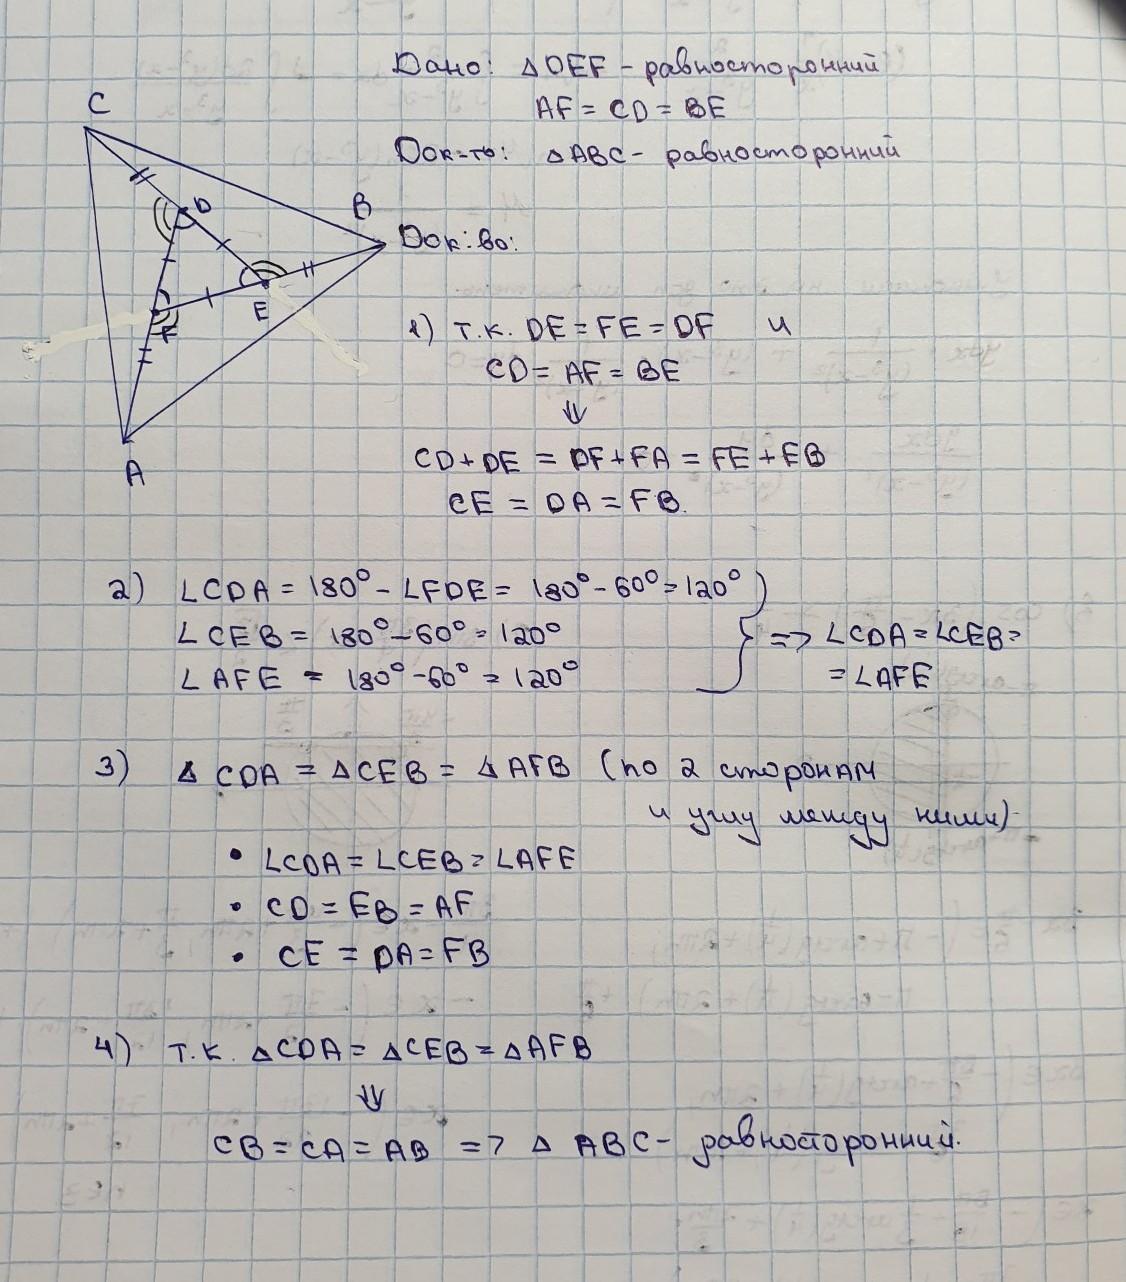 Дано: △DEF - равносторонний
AF = CD = BE
Док-ть: △ABC - равносторонний
C
D
B
E
F
A
Док-во:
1) т.к. DE = FE = DF и
CD = AF = BE
⇓
CD + DE = DF + FA = FE + EB
CE = DA = FB.
2) ∠CDA = 180° - ∠FDE = 180° - 60° = 120°
∠CEB = 180° - 60° = 120°
∠AFE = 180° - 60° = 120°
=> ∠CDA = ∠CEB =
= ∠AFE
3) △CDA = △CEB = △AFB (по 2 сторонам
и углу между ними)
• ∠CDA = ∠CEB = ∠AFE
• CD = EB = AF
• CE = DA = FB
4) т.к. △CDA = △CEB = △AFB
⇓
CB = CA = AB => △ ABC - равносторонний.